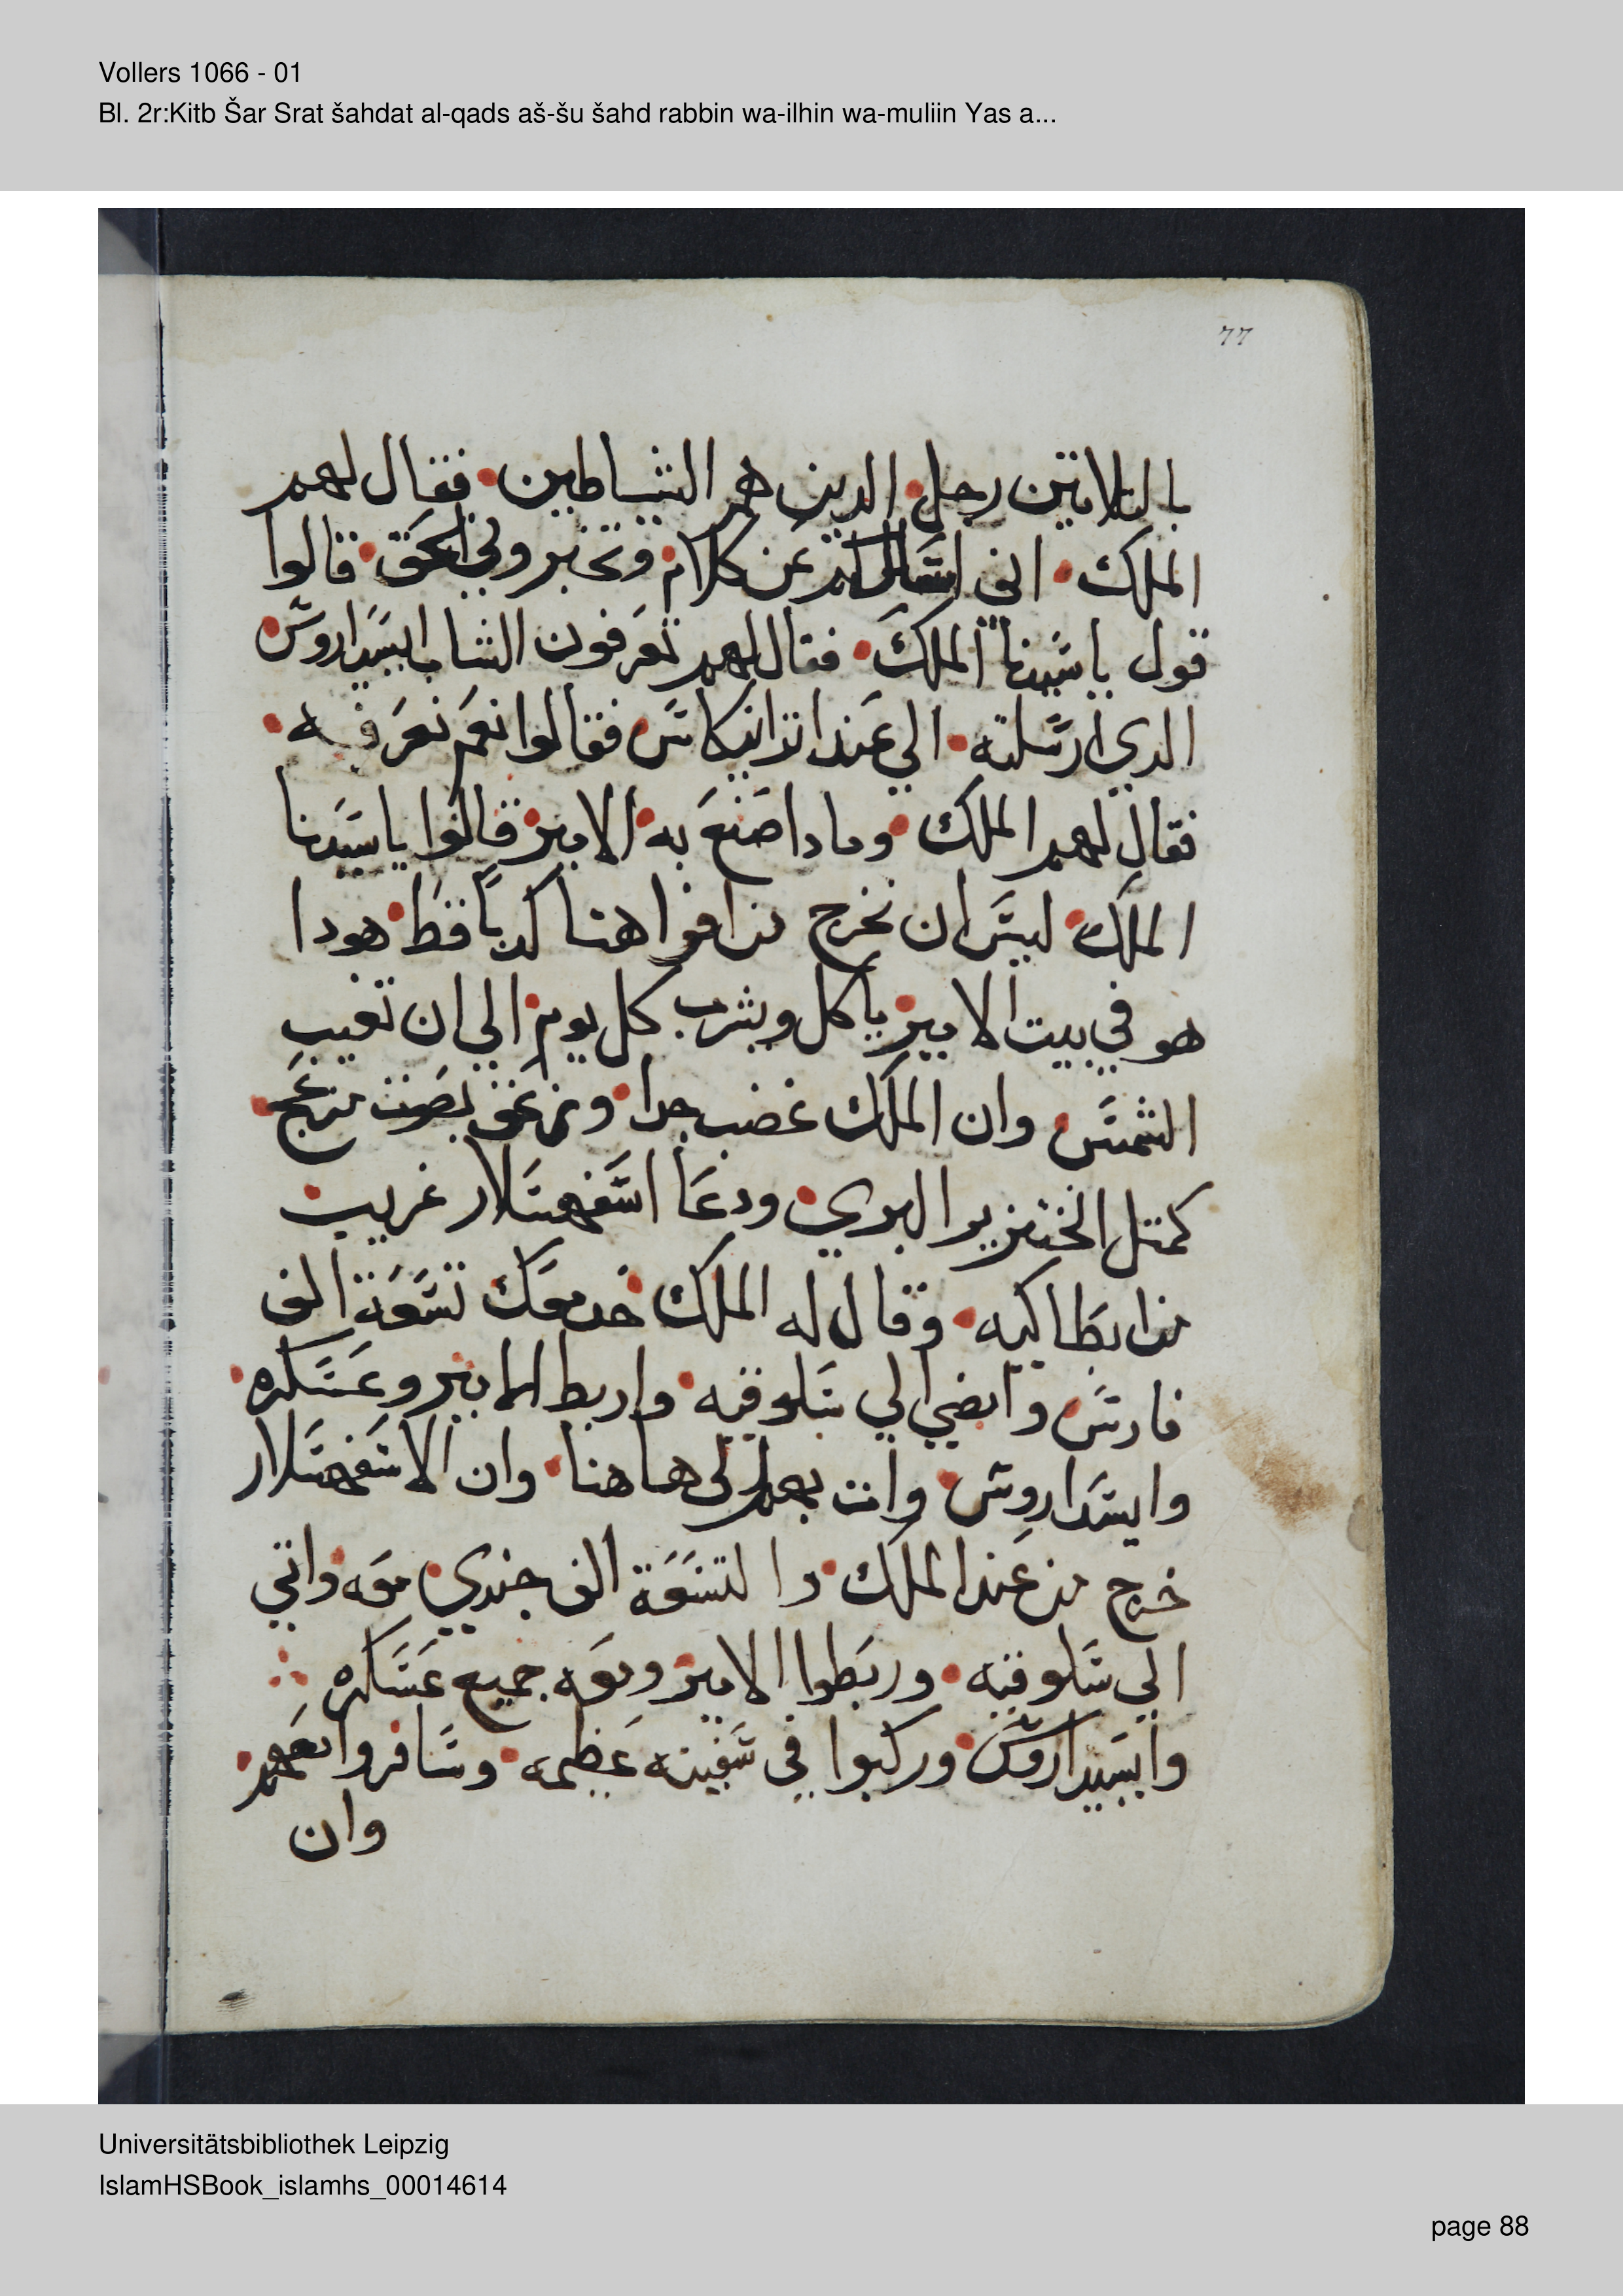 Vollers 1066 - 01
Bl. 2r:Kitb Šar Srat šahdat al-qads aš-šu šahd rabbin wa-ilhin wa-muliin Yas a...
77
بالتلاتين رجل الدين هم الشياطين فقال لهم
الملك اني اسَالكم عَن كلام وتخبروني الحَق قالوا
قول ياسَيدنا الملك فقال لهم تعَرفون الشاب ايسَيداروسَ
الدي ارسَلته الي عَند اندانيكاسَ فقالوا نعَم نعَرفه
فقال لهم الملك ومادا صَنعَ به الامير قالوا ياسَيدنا
الملك ليسَ ان نخرج من افواهنا كدباً قط هودا
هو في بيت الامير ياكل ويشرب كل يوم الي ان تغيب
الشمسَ وان الملك غضب جدا وزعَق بصَوت مزعَج
كمتل الخنزير البري ودعَا اسَفهسَلار غريب
من انطاكيه وقال له الملك خد معَك تسَعَة الف
فارسَ وامضي الي سَلوقيه واربط الامير وعَسَكره
وايسَداروسَ وات بهم الي هاهنا وان الاسَفهسَلار
خرج من عَند الملك والتسَعَة الف جندي معَه واتي
الي سَلوقيه وربَطوا الامير ومعَه جميع عَسَكره
وايسَيداروسَ وركبوا في سَفينه عَظيمه وسَافروا بهم
وان
Universitätsbibliothek Leipzig
IslamHSBook_islamhs_00014614
page 88